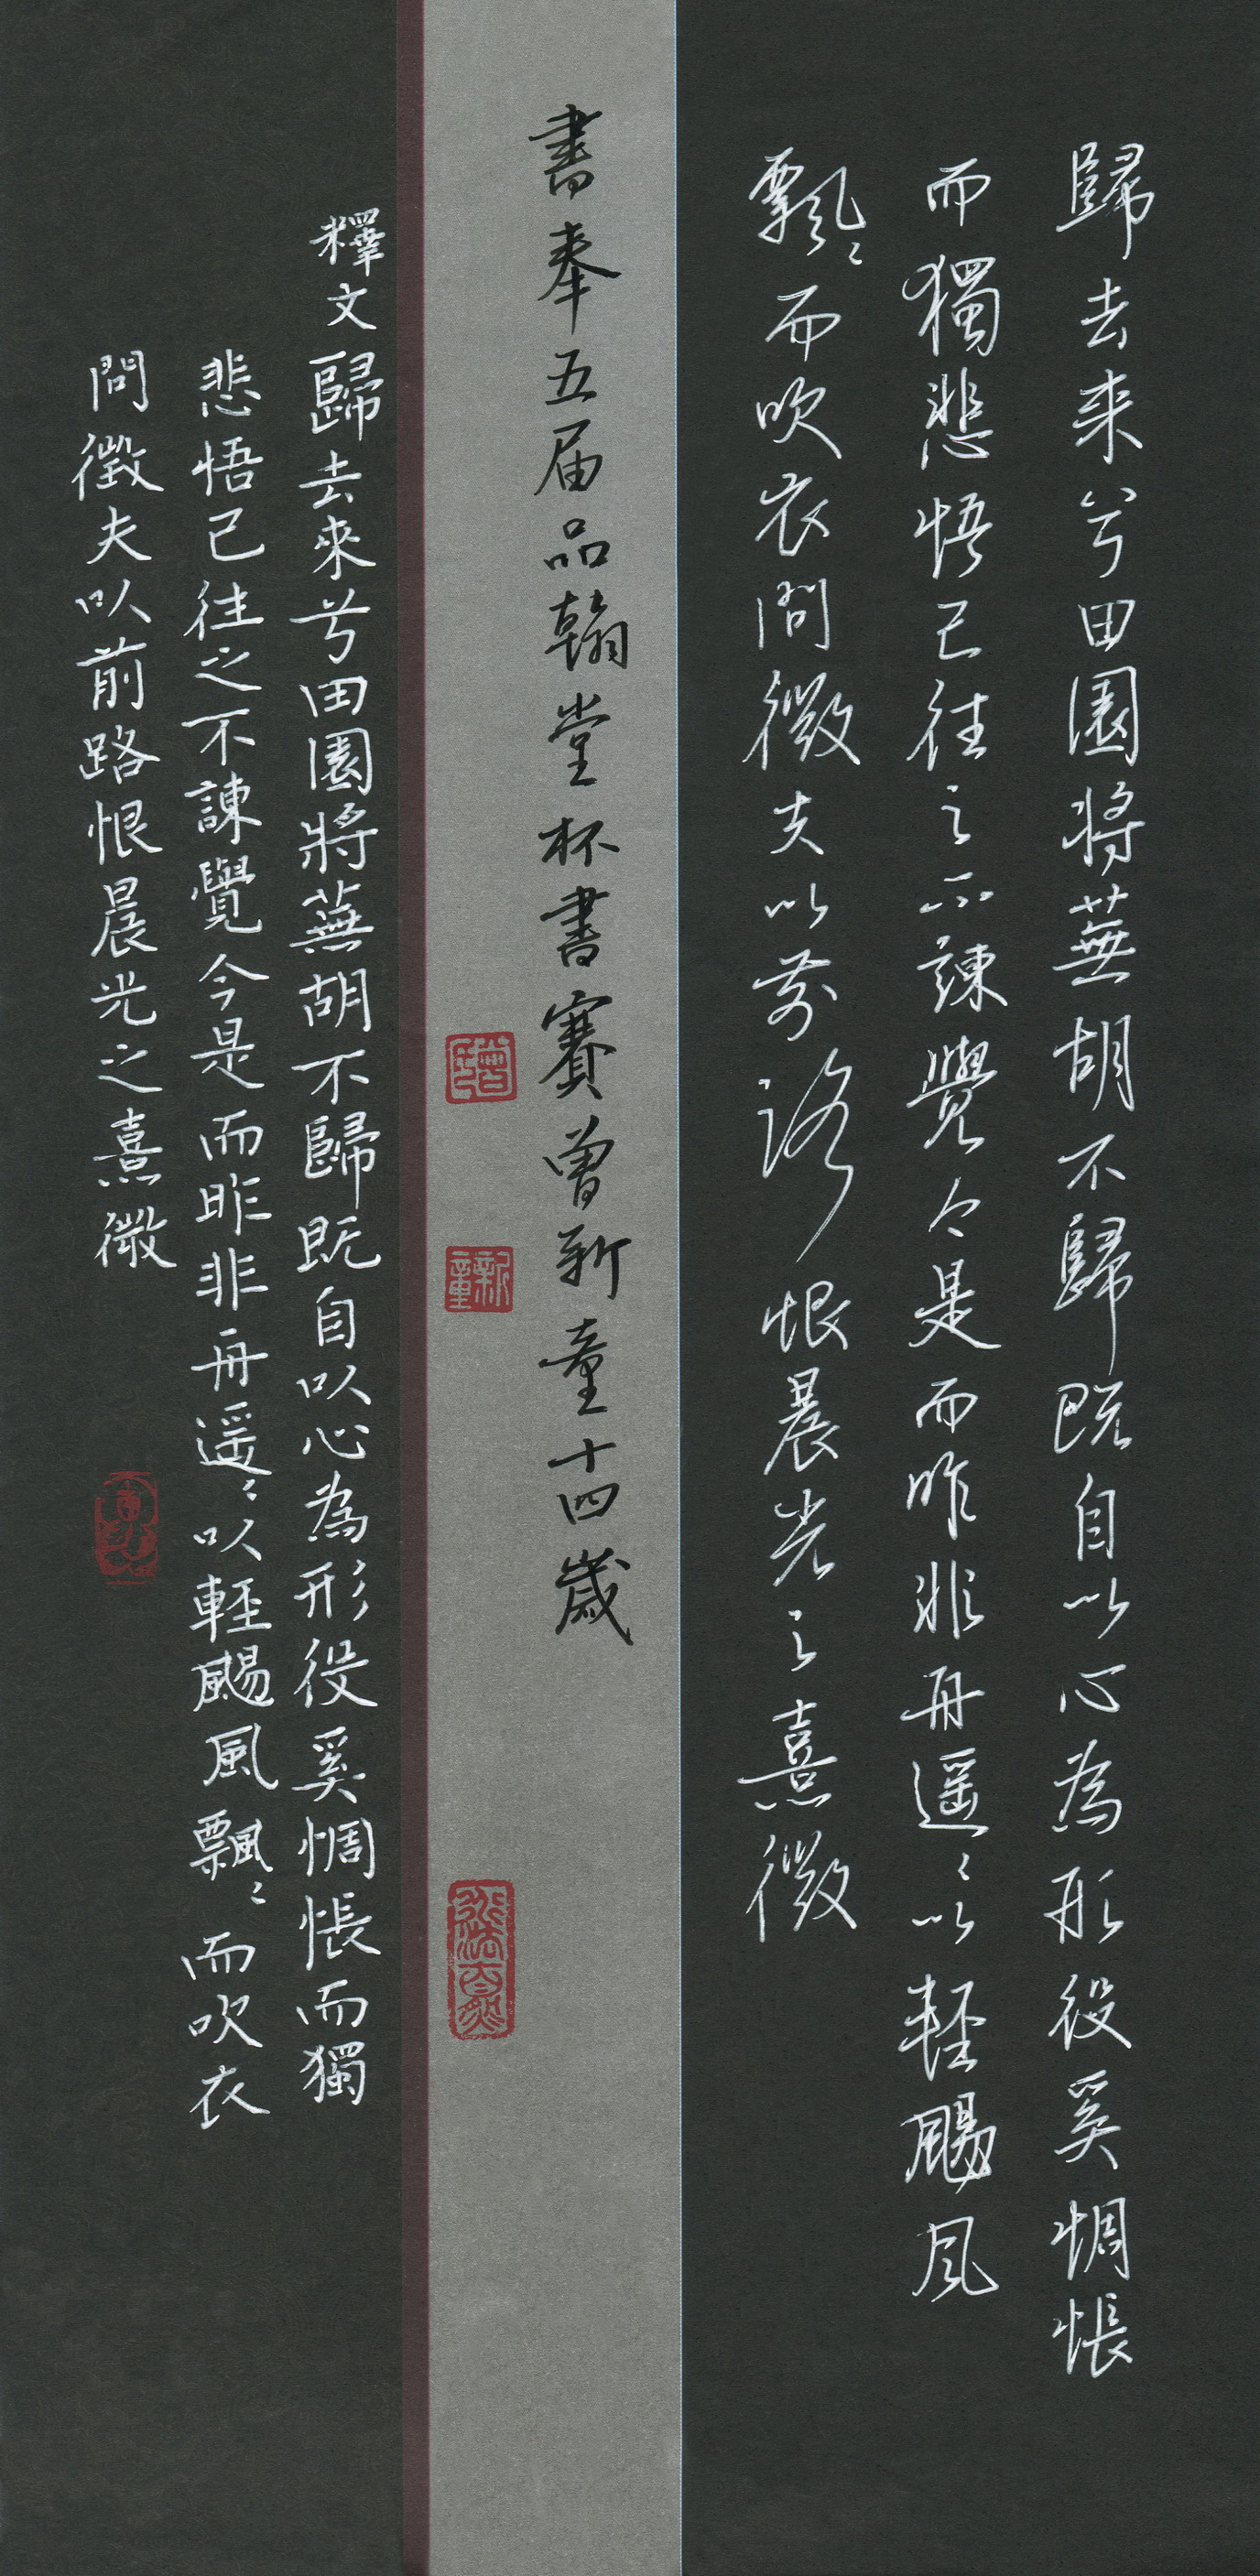 歸去来兮田園將蕪胡不歸既自以心為形役奚惆悵
而獨悲悟已往之不諫覺今是而昨非舟遥々以輕颺風
飄々而吹衣問徵夫以前路恨晨光之熹微
書奉五届品翰堂杯書賽曾新童十四歲
曾印
新童
釋文歸去來兮田園將蕪胡不歸既自以心為形役奚惆悵而獨
悲悟已往之不諫覺今是而昨非舟遥々以輕颺風飄々而吹衣
問徵夫以前路恨晨光之熹微